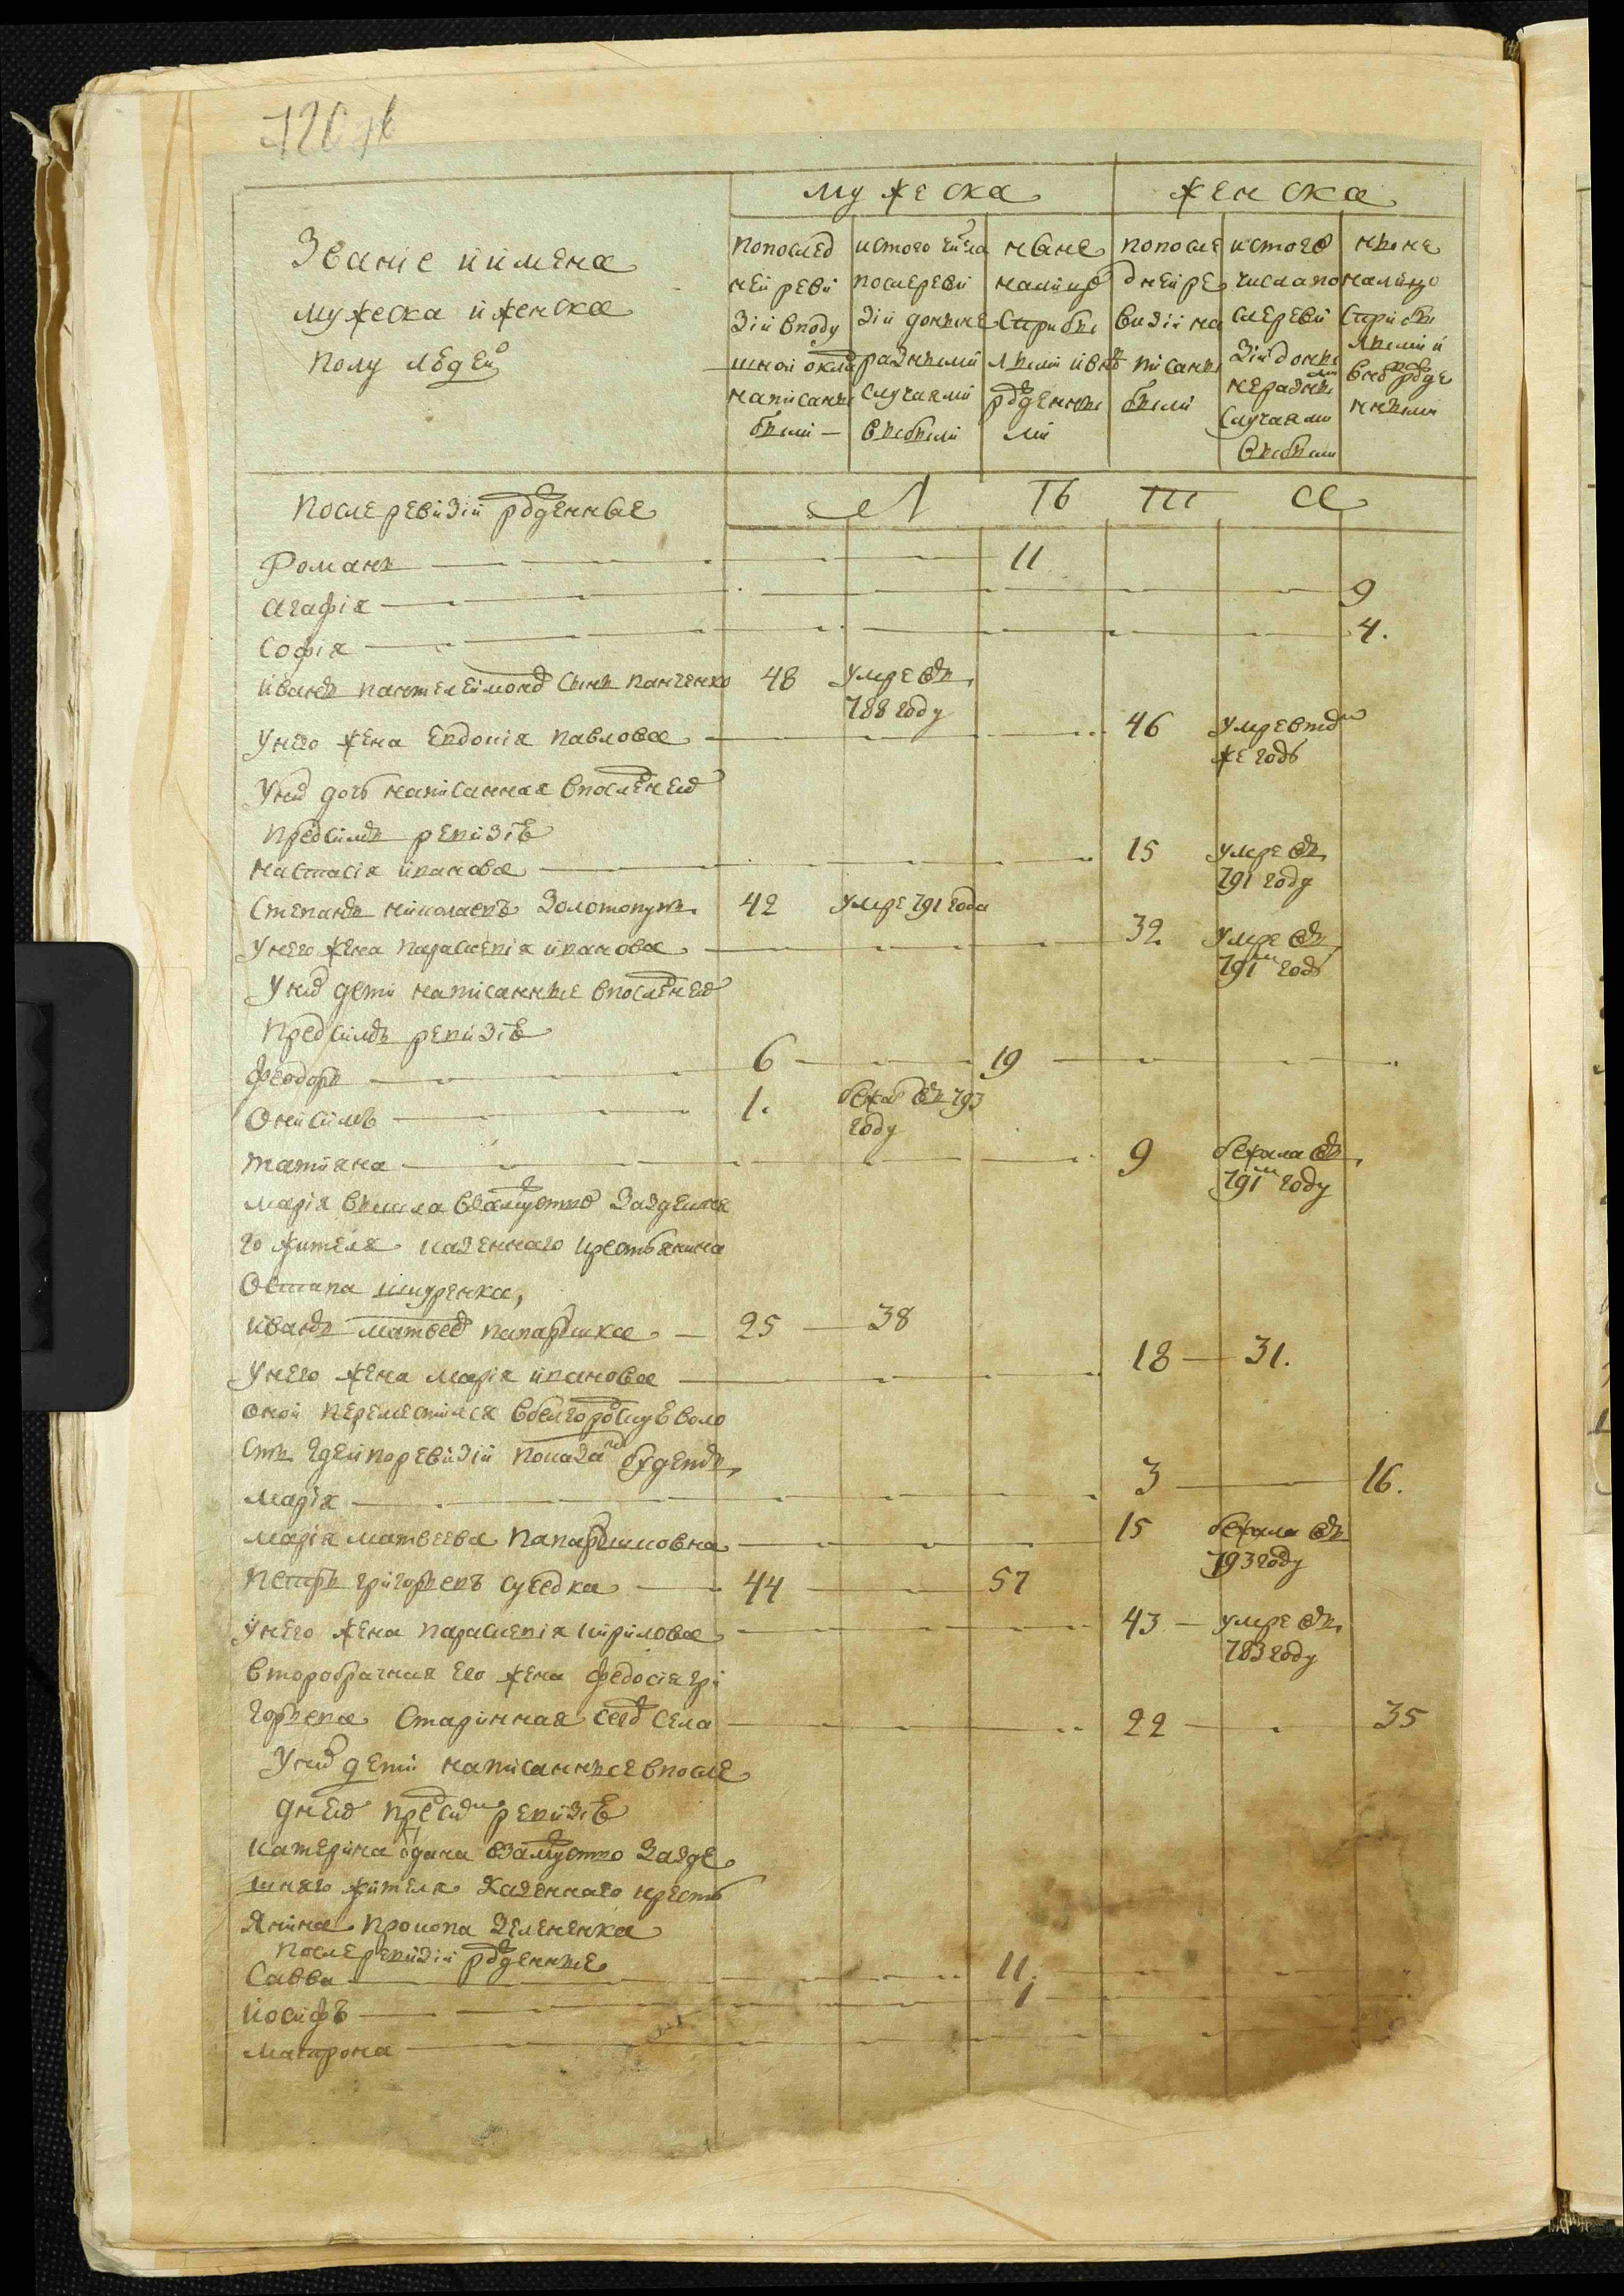 120 об
мужеска женска
Званіе и имена
мужеска и женска
полу людей
попослед
ней реви
зіи вподу
шной окла
написаны
были —
истого числа
послереви
зіи доныне
разными
случаями
выбыли
ныне
налицо
Старыбы
лыми ивно
рожденны
ми
попосле
дней ре
визіи на
писаны
были
истого
числа по
слереви
зіи доны
не разны ми
случаями
выбыли
ныне
налицо
Старыбы
лыми и
вно рожде
нными
Лѣта
Послеревизіи рожденные
Романъ 11
Агафія 9
Софія 4.
Иванъ пантелеймоновъ Сынъ панченко 48 умре въ 788 году
Унего жена Евдокія павлова 46 умре втом же годѣ
Уних дочь написанная впоследней
предсимъ ревизіѣ
Настасія иванова 15 умре въ 791 году
Степанъ николаевъ Золотопупъ 42 умре 791 года
Унего жена параскевія иванова 32 умре въ 791м годѣ
Уних дети написанные впоследней
предсимъ ревизіѣ
Феодоръ 6 19
Онисимъ 1. бежал въ 793 году
татияна 9 бежала въ 791м году
марія вышла взамужство Заздешне
го жителя казенного крестьянина
Остапа шкуренка,
Иванъ матвеев папарышка 25 38
Унего жена марія иванова 18 31.
оной переместился вбелгородскую воло
сть гдеи поревизіи показан будетъ
марія 3 16.
марія матвеева папарышковна 15 бежала въ 793 году
петръ григорьевъ суседка 44 57
Унего жена параскевія кирилова 43 умре въ 783 году
второбрачная его жена федосія гри
горьева Старинная сего Села 22 35
Уних дети написанные впосле
дней пред сим ревизіѣ
катерина одана взамужство Заздe
шняго жителя Казенного кресть
янина прокопа Зелененка
послеревизіи рожденные
Савва 11.
Иосифъ 1
матрона